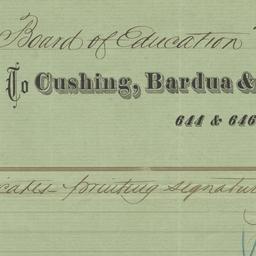 Board of Education
To Cushing, Bardua &
644 & 646
icates - printing signatur